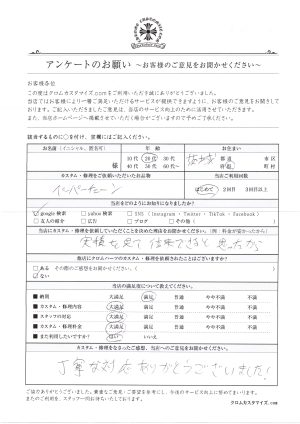 アンケートのお願い ～お客様のご意見をお聞かせください～
お客様各位
この度はクロムカスタマイズ.comをご利用いただき誠にありがとうございました。
当店ではお客様により一層ご満足いただけるサービスが提供できますように、お客様のご意見をお聞きしております。ご記入いただきましたご意見は、当店のサービス向上のために活用させていただきます。
また、当店ホームページへ掲載させていただく場合がございますので予めご了承ください。
該当するものに○を付け、空欄にはご記入ください。
お名前（イニシャル、匿名可） 年代 お住まい
様 10代 20代 30代 40代 50代 60代～ 都道府県 市区町村
カスタム・修理を依頼いただいたお品物 当店ご利用回数
ペーパーチェーン はじめて 2回目 3回目以上
当店をどのようにお知りになりましたか？
google 検索 yahoo 検索 SNS（Instagram・Twitter・TikTok・Facebook）
友人の紹介 広告 ブログ その他（ ）
当店にカスタム・修理を依頼していただくことを決めた理由をお聞かせください。（例：料金が安かったから）
実績を見て 仕事できると思ったから
他店にクロムハーツのカスタム・修理を依頼されたことはございますか？
ある その際のご感想をお聞かせください。（ ）
ない
当店の満足度について教えてください。
■ 納期 大満足 満足 普通 やや不満 不満
■ カスタム・修理内容 大満足 満足 普通 やや不満 不満
■ スタッフの対応 大満足 満足 普通 やや不満 不満
■ カスタム・修理料金 大満足 満足 普通 やや不満 不満
■ また利用したいですか？ はい いいえ
カスタム・修理をなさったご感想、当店へのご意見をお聞かせください
丁寧な対応ありがとうございました！
ご協力ありがとうございました。貴重なご意見・ご要望を参考にし、今後のサービス向上に努めてまいります。
またのご利用を、スタッフ一同お待ちいたしております。
クロムカスタマイズ.com